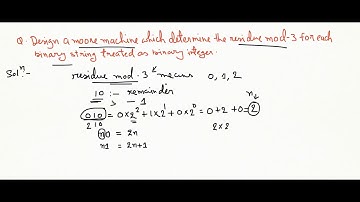 Q. Design a moore machine which determine the residue mod-3 for each
binary string treated as binary integer.
Solⁿ:-
residue mod-3 means 0, 1, 2
10 :- remainder
> - 1
010 = 0×2² + 1×2¹ + 0×2⁰ = 0+2+0 = 2
2 1 0
2×2
n0 = 2n
n1 = 2n+1